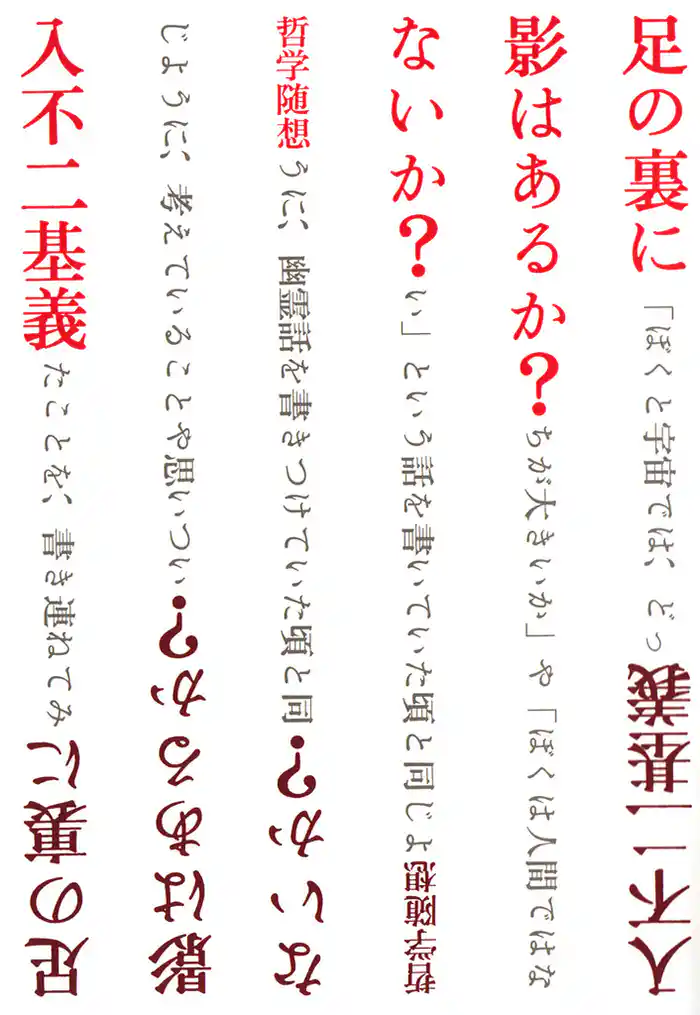 足の裏に「ぼくと宇宙では、どっ入不二基義
影はあるか?ちが大きいか」や「ぼくは人間ではな
ないか?い」という話を書いていた頃と同じよ哲学随想
哲学随想うに、幽霊話を書きつけていた頃と同ないか?
じように、考えていることや思いつい影はあるか?
入不二基義たことを、書き連ねてみ足の裏に